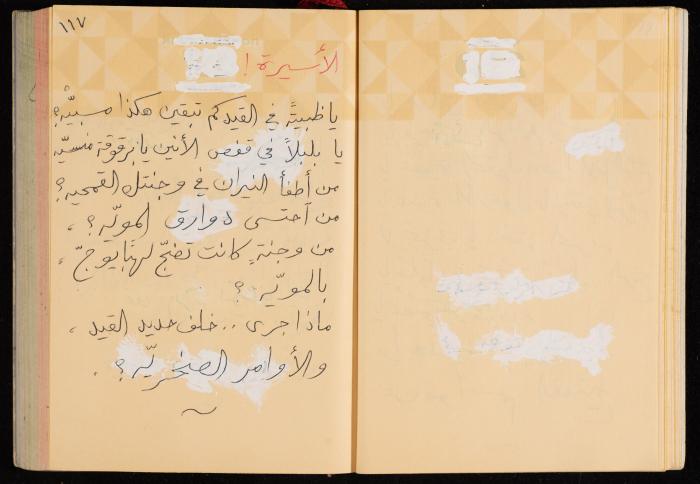 ١١٧
الأسيرة !
يا ظبيةً في القيد كم تبقين هكذا مسبيّة ؟
يا بلبلاً في قفص الأنين يا برقوقة منسيّه
من أطفأ النيران في وجنتك القمحيه ؟
من احتسى دوارق المويّه ؟ ،
من وجنةٍ كانت تضجّ لهبًا يوجّ ،
بالمويّه ؟
ماذا جرى .. خلف حديد القيد ،
والأوامر الصخريّه ؟ .